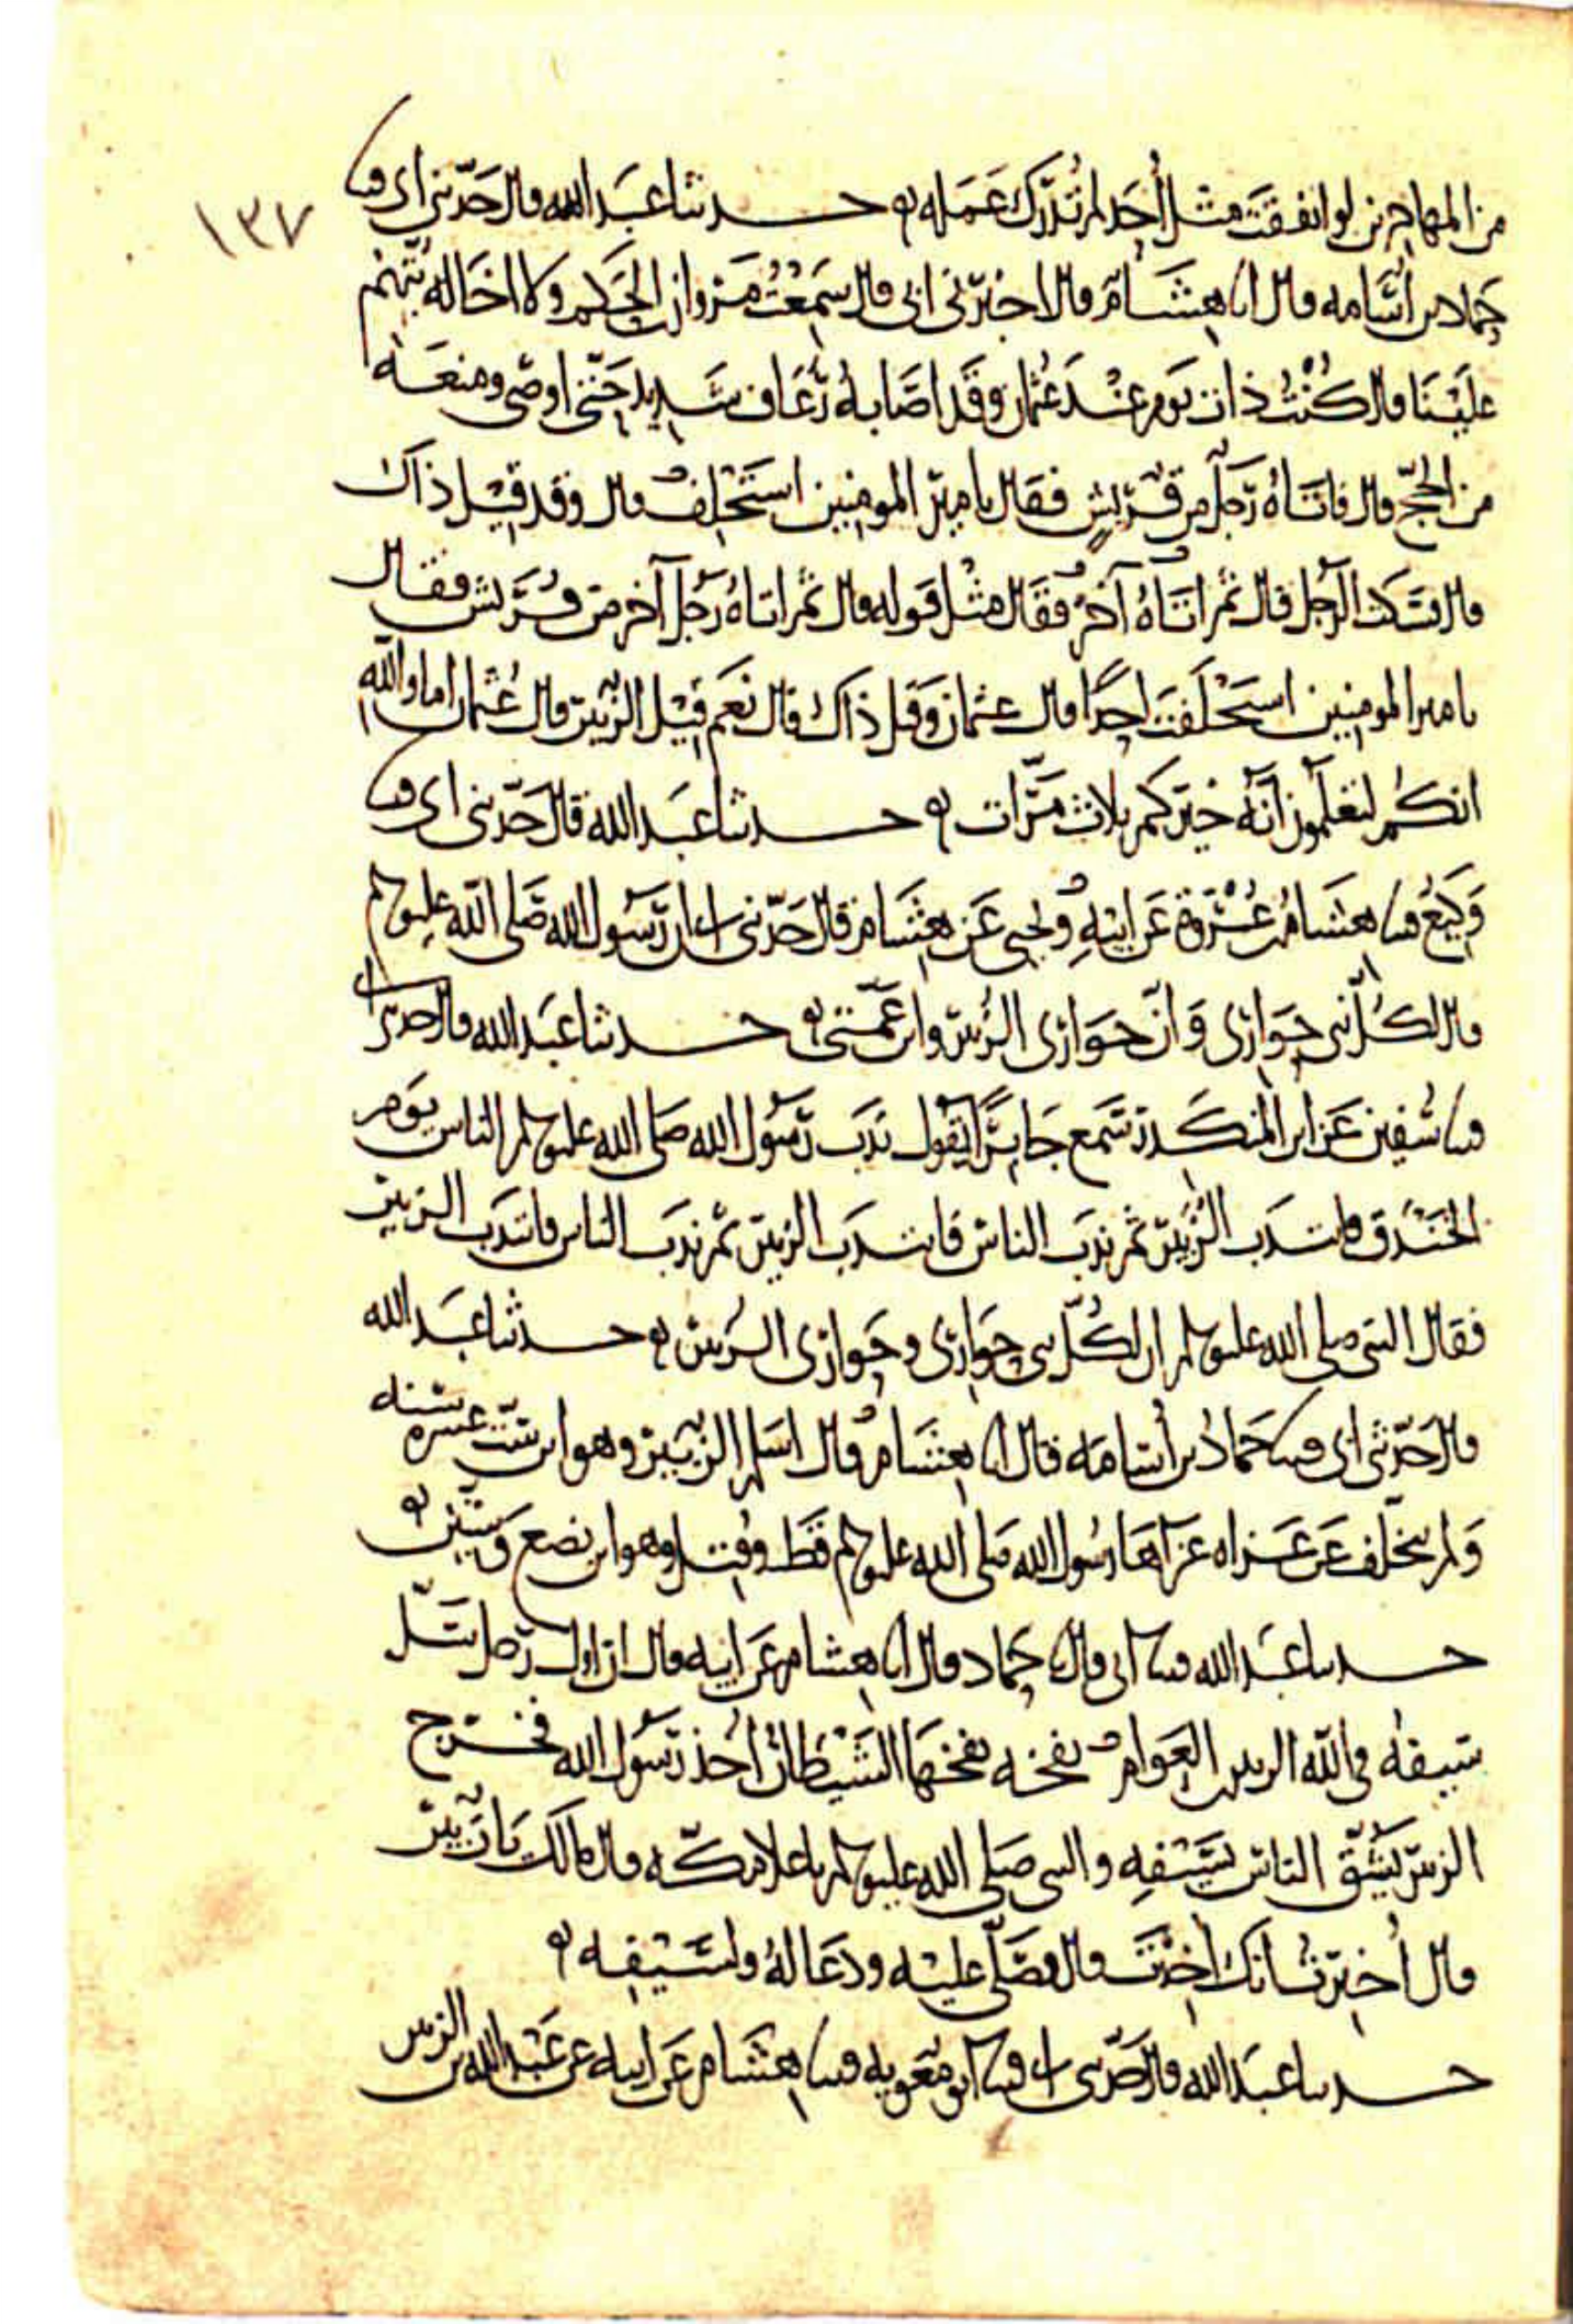 ١٣٧
من المهاجرين لو انفقت مثل أحد لم تدرك عمله حدثنا عبد الله قال حدثني ابي قثنا
حماد بن أسامه قال انا هشام قال اخبرني ابي قال سمعت مروان بن الحكم ولا اخاله يتهم
علينا قال كنت ذات يوم عند عثمان وقد اصابه رعاف شديد حتى اوصى ومنعه
من الحج قال فاتاه رجل من قريش فقال يا مير المومنين استخلف قال وقد قيل ذاك
قال فسكت الرجل قال ثم اتاه آخر فقال مثل قوله قال ثم اتاه رجل آخر من قريش فقال
يا مير المومنين استخلفت احدا قال عثمان وقيل ذاك قال نعم قيل الزبير قال عثمان اما والله
انكم لتعلمون انه خيركم ثلاث مرات حدثنا عبد الله قال حدثني ابي قثنا
وكيع قثنا هشام بن عروة عن ابيه ويحيى عن هشام قال حدثني ابي ان رسول الله صلى الله عليه وسلم
قال لكل نبي حواري وان حواري الزبير وابن عمتي حدثنا عبد الله قال حدثني ابي
قثنا سفين عن ابن المنكدر سمع جابرا يقول ندب رسول الله صلى الله عليه وسلم الناس يوم
الخندق فانتدب الزبير ثم ندب الناس فانتدب الزبير ثم ندب الناس فانتدب الزبير
فقال النبي صلى الله عليه وسلم ان لكل نبي حواري وحواري الزبير حدثنا عبد الله
قال حدثني ابي قثنا حماد بن أسامه قال انا هشام قال اسلم الزبير وهو ابن ست عشره سنه
ولم يتخلف عن غزاه غزاها رسول الله صلى الله عليه وسلم قط وقتل وهو ابن بضع وستين
حدثنا عبد الله قثنا ابي قال حماد قال انا هشام عن ابيه قال ان اول رجل سل
سيفه في الله الزبير بن العوام نفخه نفخها الشيطان أخذ رسول الله فخرج
الزبير يشق الناس بسيفه والنبي صلى الله عليه وسلم باعلا مكه قال مالك يا زبير
قال أخبرت انك اخذت قال فصلى عليه ودعا له ولسيفه
حدثنا عبد الله قال حدثني ابي قثنا ابو معويه قثنا هشام عن ابيه عن عبد الله بن الزبير